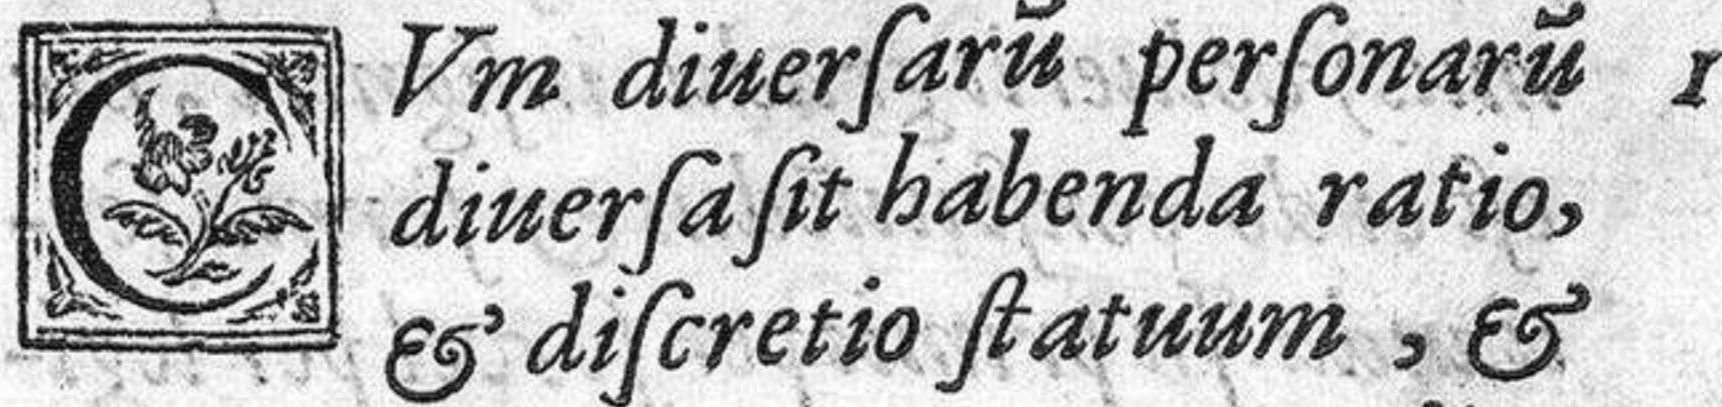 CVm diuerſarū perſonarū 1
diuerſa ſit habenda ratio,
& diſcretio ſtatuum, &